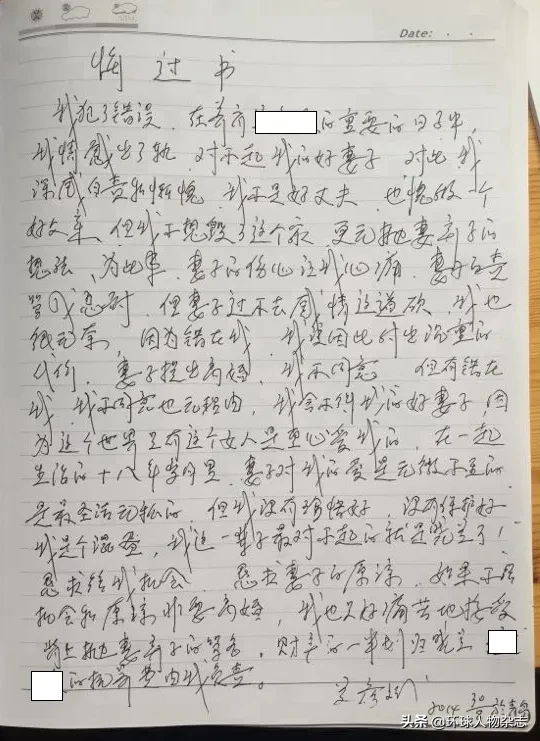 Date: . .
悔过书
我犯了错误，在养育 的重要的日子中，
我情感出了轨，对不起我的好妻子，对此我
深感自责和惭愧，我不是好丈夫，也愧做一个
好父亲，但我不想毁了这个家，更无抛妻弃子的
想法，为此事，妻子的伤心让我心痛，妻 责
骂我 ，但妻子过不去感情这道砍，我也
很无奈，因为错在我，我要因此付出沉重的
代价，妻子提出离婚，我不同意，但有错在
我，我不同意也无理由，我舍不得我的好妻子，因
为这个世界只有这个女人是真心爱我的，在一起
生活的十八年岁月里，妻子对我的爱是无微不至的
是最圣洁无私的，但我没有珍惜好，没有保护好
我是个混蛋，我这一辈子最对不起的就是晓兰了！
恳求给我机会，恳求妻子的原谅，如果不给
机会和原谅非要离婚，我也只好痛苦地接受
背上抛妻弃子的骂名，财产的一半划归晓兰
的抚养费由我负责。
2014
头条@环球人物杂志